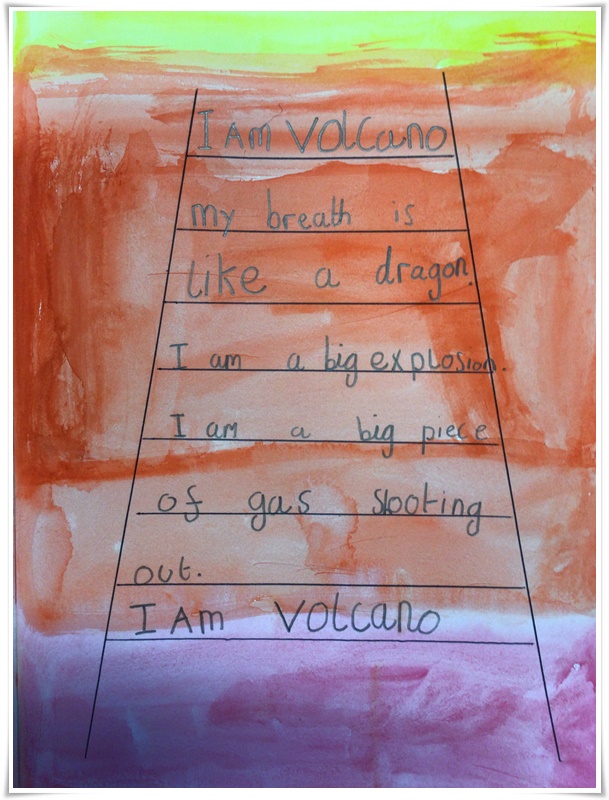 I Am Volcano
my breath is
like a dragon.
I am a big explosion.
I am a big piece
of gas slooting
out.
I Am Volcano